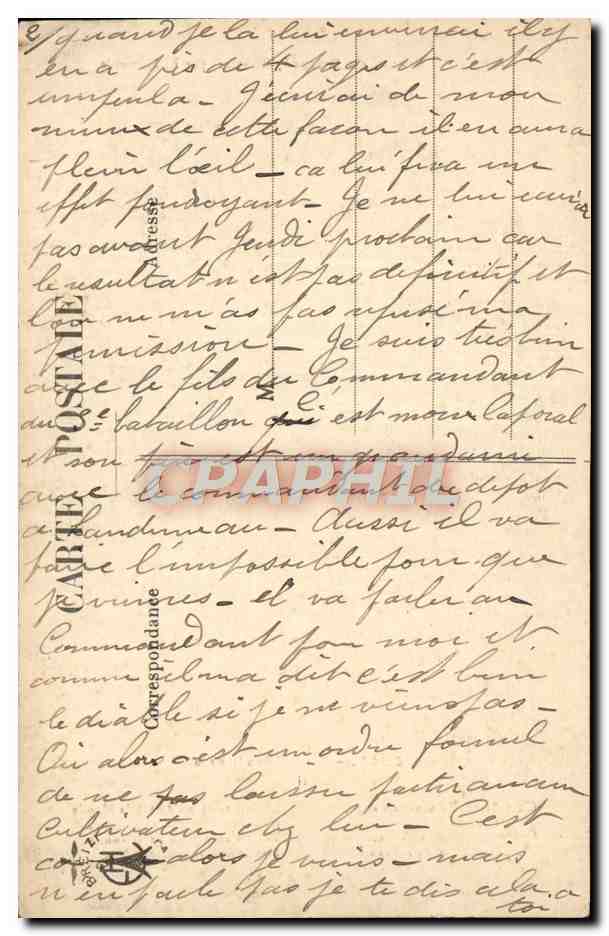 2/ quand je la lui enverrai il y
en a près de 4 pages et c'est
J'écrirai de mon
mieux de cette façon il en aura
plein l'œil - ca lui fera un
effet foudroyant - Je ne lui écrirai
pas avant Jeudi prochain car
le resultat n'est pas definitif et
l'on ne m'as pas refusé ma
permission - Je suis très bien
avec le fils du Commandant
du 2e bataillon qui C'est mon Caporal
et son père est un grand ami
avec le commandant du dépot
a Landerneau - Aussi il va
faire l'impossible pour que
je vienne - il va parler au
Commandant pour moi et
comme il m'a dit c'est bien
le diable si je ne viens pas -
Ou alors c'est un ordre formel
de ne pas laisser partir aucun
cultivateur chez lui - C'est
alors je viens - mais
n'en parle pas je te dis cela a
toi
CARTE POSTALE
Correspondance
Adresse
M
BREIZ
CPAPHIL